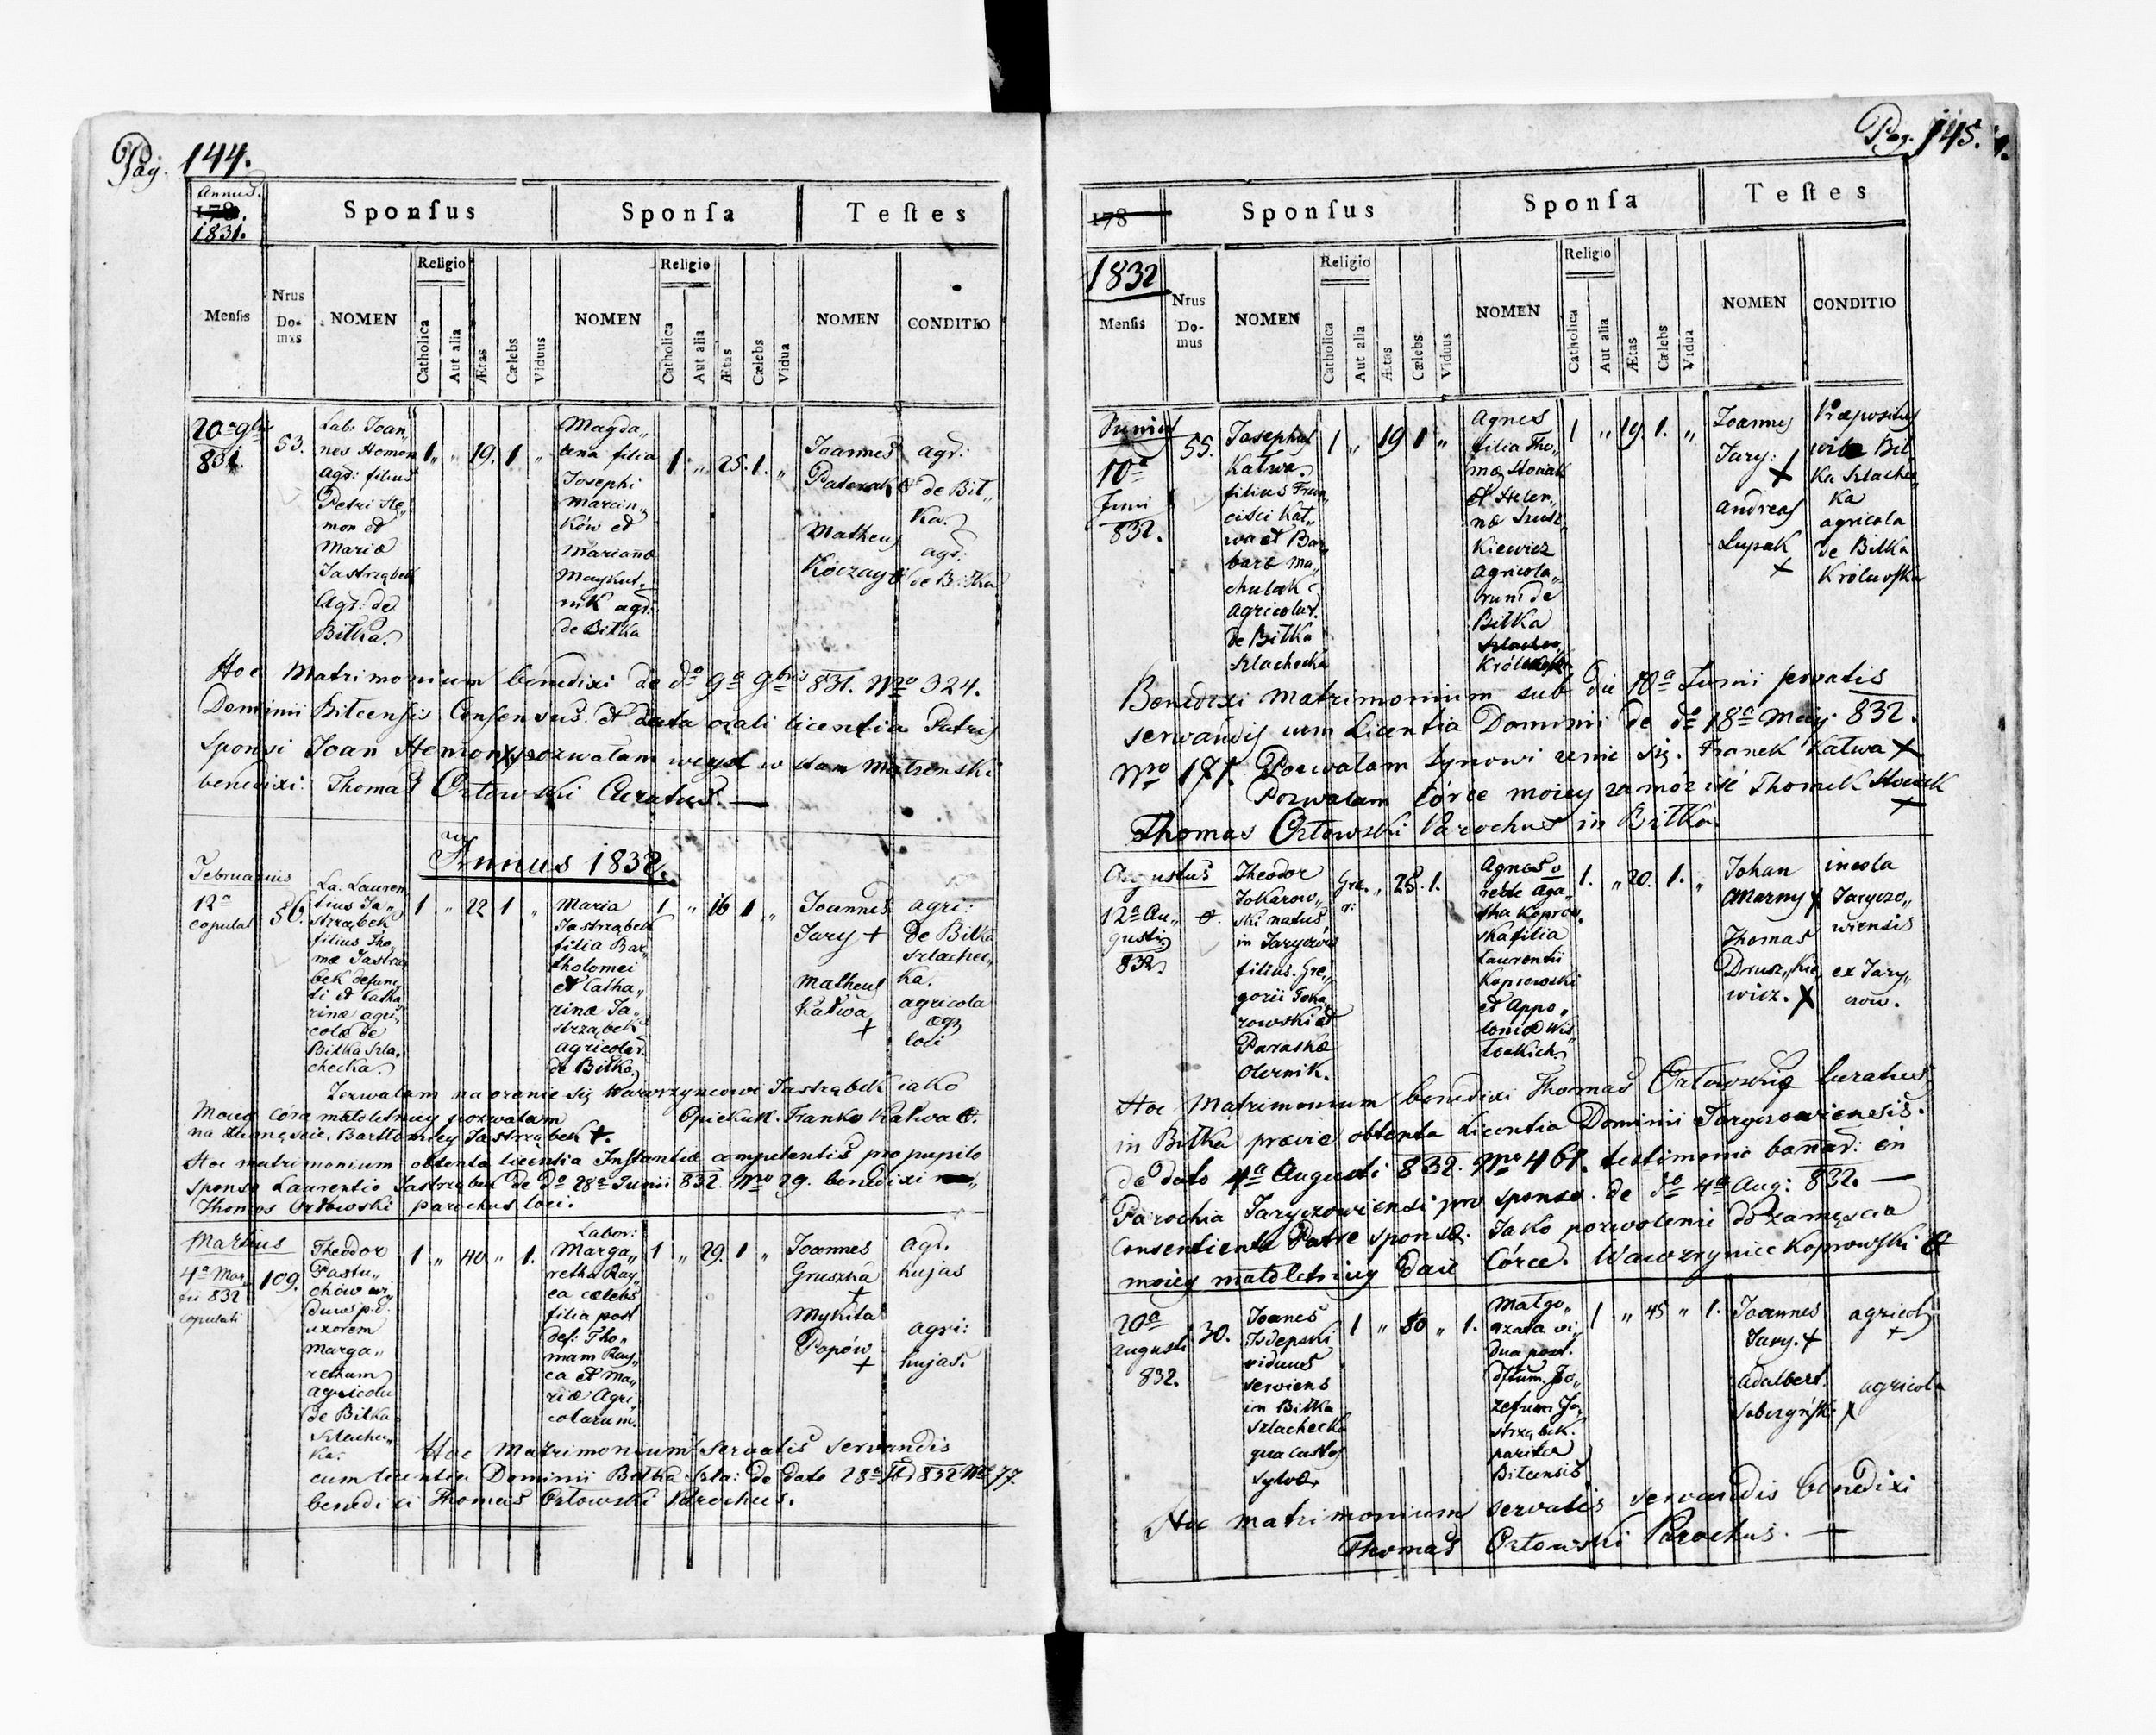 Pag. 144.
Annus.
178.
1831.
Sponſus
Sponſa
Teſtes
Menſis
Nrus Do-mus
NOMEN
Religio
Catholica
Aut alia
Ætas
Cælebs
Viduus
NOMEN
Religio
Catholica
Aut alia
Ætas
Cælebs
Vidua
NOMEN
CONDITIO
20a 9bris
831.
53.
Lab: Joan„
nes Hemon
agr: filius
Petri He„
mon et
Mariæ
Jastrząbek
Agr: de
Biłka.
1. „ 19. 1 „
Magda„
lena filia
Josephi
Marcin„
ków et
Marianæ
Maykut„
nik agr:
de Biłka
1. „ 25. 1. „
Joannes
Patexak
Matheus
Koczay
agr:
de Bił„
ka.
agr:
de Biłka
Hoc Matrimonium benedixi de do 9a 9bris 831. Nro 324.
Dominii Bilcensis Consensus et data orali licentia Patris
Sponsi Joan Hemon x pozwalam weyść w stan małżenski
benedixi: Thomas Orłowski Curatus. —
Annus 1832.
Februarius
12a
copulati
86.
La: Lauren
tius Ja„
strząbek
filius Tho„
mæ Jastrzą
bek defunc
ti et Catha
rinæ agri„
colæ de
Biłka Szla„
checka.
1 „ 22 1 „
Maria
Jastrząbek
filia Bar„
tholomei
et Catha„
rinæ Ja„
strząbek
agricolar.
de Biłka.
1 „ 16 1 „
Joannes
Jary +
Matheus
Kałwa
+
agri:
de Biłka
szlachec„
ka.
agricola
loci
Zezwalam na ozenie się Wawrzyncowi Jastrząbek iako
Opiekuk. Franko Kałwa
Moiey córce małoletniey pozwalam
na Bartłomiey Jastrząbek +.
Hoc matrimonium obtenta licentia Instantiæ competentis pro pupilo
sponso Laurentio Jastrząbek de do 28a Junii 832. Nro 29. benedixi
Thomas Orłowski parochus loci.
Martius
4a Mar„
tii 832
copulati
109.
Theodor
Pastu„
chów vi„
duus p. d.
uxorem
Marga„
retham
agricola
de Biłka
szlachec„
ka.
1 „ 40 „ 1.
Labor:
Marga„
retha Ray„
ca cælebs
filia post
def: Tho„
mam Ray„
ca et Ma„
riæ Agri„
colarum.
1 „ 29. 1 „
Joannes
Gruszka
+
Mykita
Popów
+
agr.
hujas
agri:
hujas.
Hoc Matrimonium servatis servandis
cum licentia Dominii Biłka Szla: de dato 28a 832 Nro 77.
benedixi Thomas Orłowski Parochus.
Pag. 145.
178
1832
Sponſus
Sponſa
Teſtes
Menſis
Nrus Do-mus
NOMEN
Religio
Catholica
Aut alia
Ætas
Cælebs
Viduus
NOMEN
Religio
Catholica
Aut alia
Ætas
Cælebs
Vidua
NOMEN
CONDITIO
Junius
10a
Juni
832.
55.
Josephus
Kałwa
filius Fran„
cisci Kał„
wa et Bar„
baræ Ma„
chulak
Agricolar.
de Biłka
Szlachecka
1 „ 19 1 „
Agnes
filia Tho„
mæ Słowik
et Helen„
næ Szusz
kiewicz
Agricola„
rum de
Biłka
szlachec
Królewska
1 „ 19. 1. „
Joannes
Jary:
+
Andreas
Łupak
+
Præpositus
Bił
ka Szlachec
ka
agricola
de Biłka
Królewska
Benedixi Matrimonium sub die 10a Junii servatis
servandis cum Licentia Dominii de do 18a Maij 832.
Nro 171. Pozwalam Synowi zenić się. Franek Kałwa +
Pozwalam Córce moiey zamóż iść Thomek
+
Thomas Orłowski Parochus in Biłka.
Augustus
12a Au„
gusti
832
Theodor
Tokarow„
ski natus
in Jaryczów
filius Gre„
gorii Toka„
rowski et
Paraskæ
Olernik.
Gre. „ 28. 1.
r:
Agnes v
recte Aga„
tha Koprow„
ska filia
Laurentii
Koprowski
et Appo„
loniæ Wis„
łockich
1. „ 20. 1. „
Johan
Marny +
Thomas
Drusz„kie
wicz. X
incola
Jaryczo„
wiensis
ex Jary„
czow.
Hoc Matrimonium benedixi Thomas Orłowski Curatus
in Biłka prævie obtenta Licentia Dominii Jaryczowiensis.
de dato 4a Augusti 832. Nro 461. testimonio bannor: ein
Parochia Jaryczowiensi pro sponso. de do 4a Aug: 832. —
Consentiente Patre sponsæ. Jako pozwolenie do zamęscia
moiey małoletniey daie Córce. Wawrzyniec Koprowski
20a
Augusti
832.
30.
Joanes
viduus
serviens
in Biłka
szlachecka
qua custos
sylvæ.
1 „ 80 „ 1.
Małgo„
rzata vi„
dua post.
dftum. Jo„
zefum Ja„
strząbek.
pariter
Bilcensis
1 „ 45 „ 1.
Joannes
Jary. +
Adalbert.
X
agricola
+
agricola
Hoc matrimonium servatis servandis benedixi
Thomas Orłowski Parochus. —